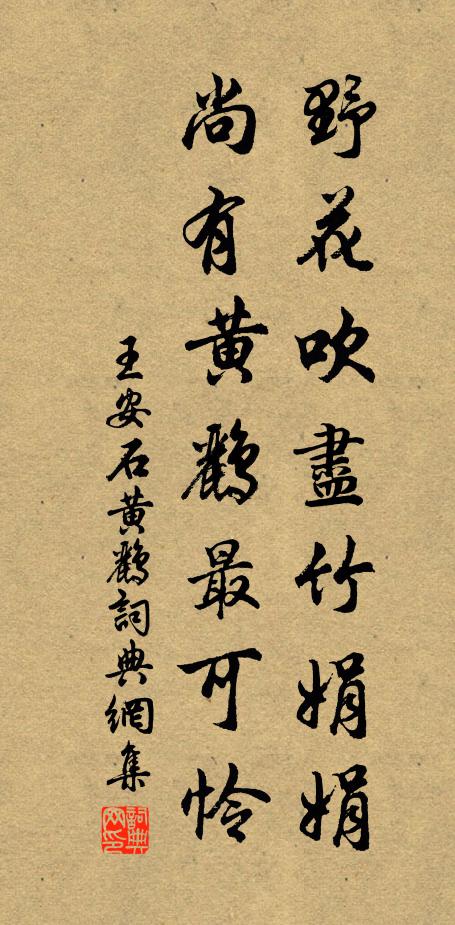 野花吹盡竹娟娟
尚有黃鸝最可怜
王安石黃鸝詞典網集
詞典
网印